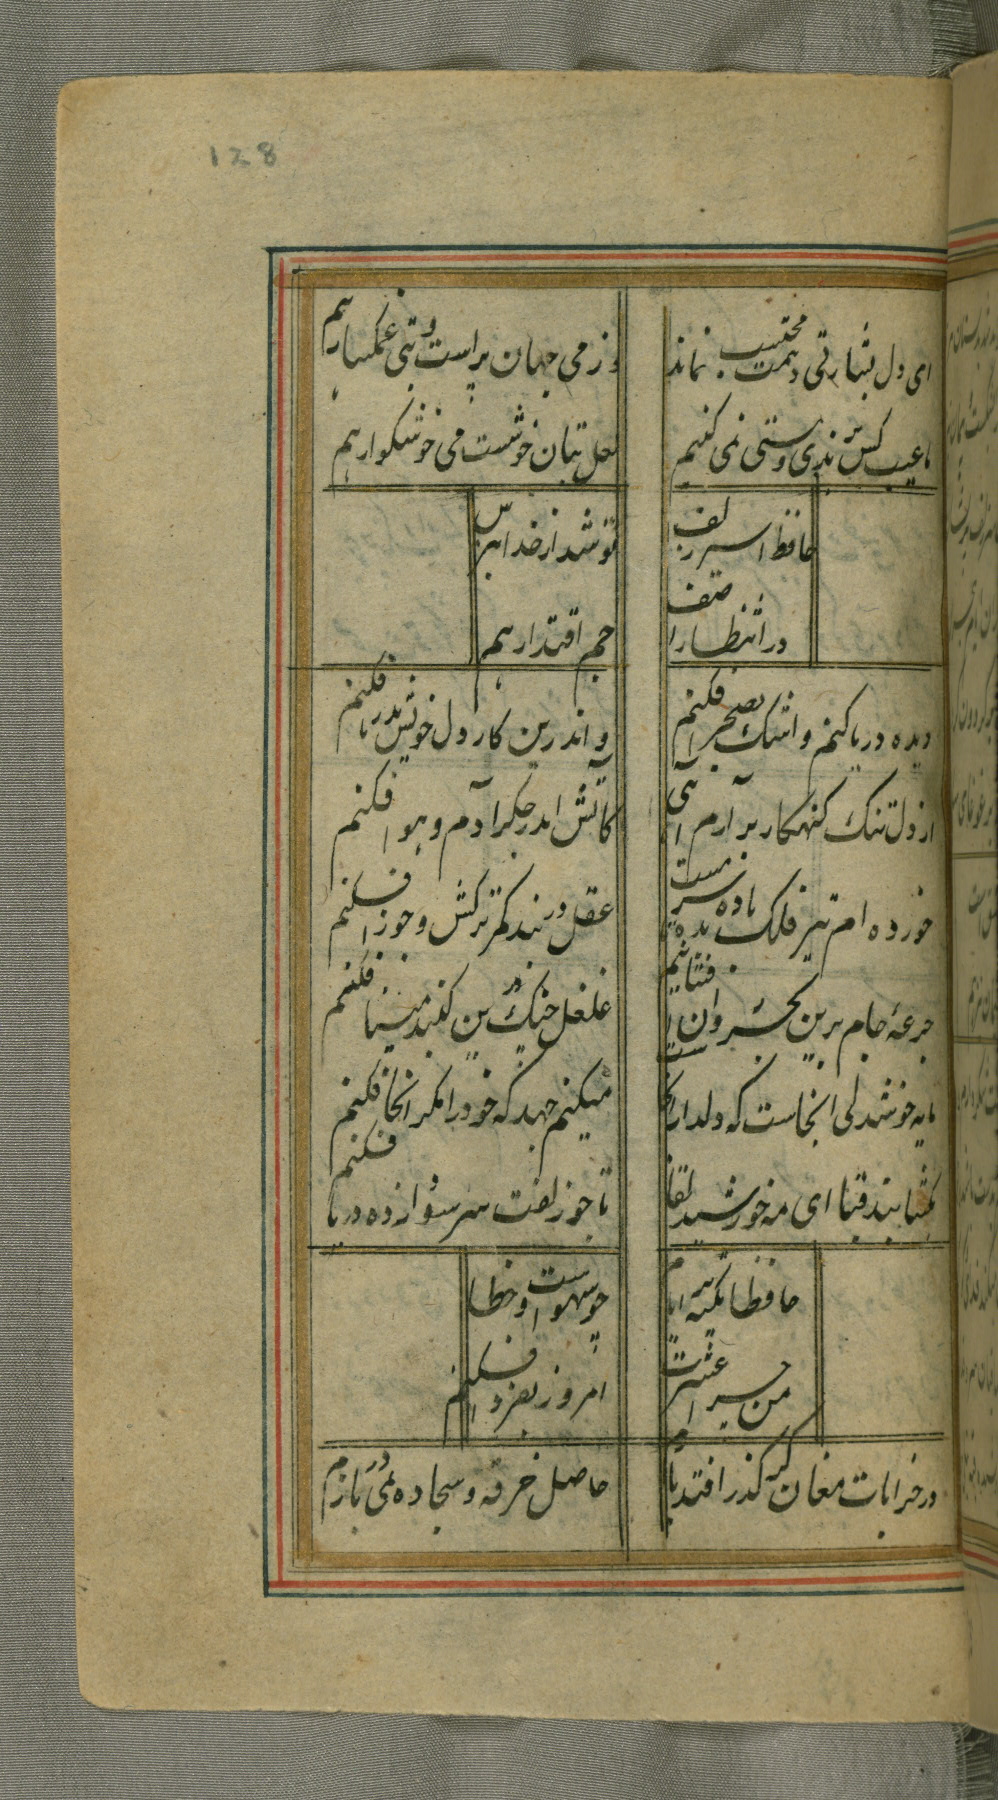 128
ای دل بشارتی دهمت محتسب نماند
وز می جهان پر است و بت می‌گسار هم
ما عیب کس برندی و مستی نمی کنیم
لعل بتان خوشست می خوشگوار هم
حافظ اسیر زلف
تو شد از خدا بترس
در انتظار آصف
جم اقتدار هم
دیده دریا کنم و اشک بصحرا فکنم
و اندرین کار دل خویش بدریا فکنم
از دل تنک کنهکار برآرم آهی
کاتش اندر جکر آدم و حوا فکنم
خورده ام تیر فلک باده بده تا سرمست
عقده در بند کمر ترکش جوزا فکنم
جرعه جام برین تخت روان افشانم
غلغل چنک درین کنبد مینا فکنم
مایه خوشدلی آنجاست که دلدار آنجاست
میکنم جهد که خود را مکر آنجا فکنم
بکشا بند قبا ای مه خورشید لقا
تا چو زلفت سر سودازده در پا فکنم
حافظا تکیه بر ایام
چو سهوست و خطا
من چرا عشرت
امروز بفردا فکنم
در خرابات مغان کر کذر افتد بازم
حاصل خرقه و سجاده در می بازم